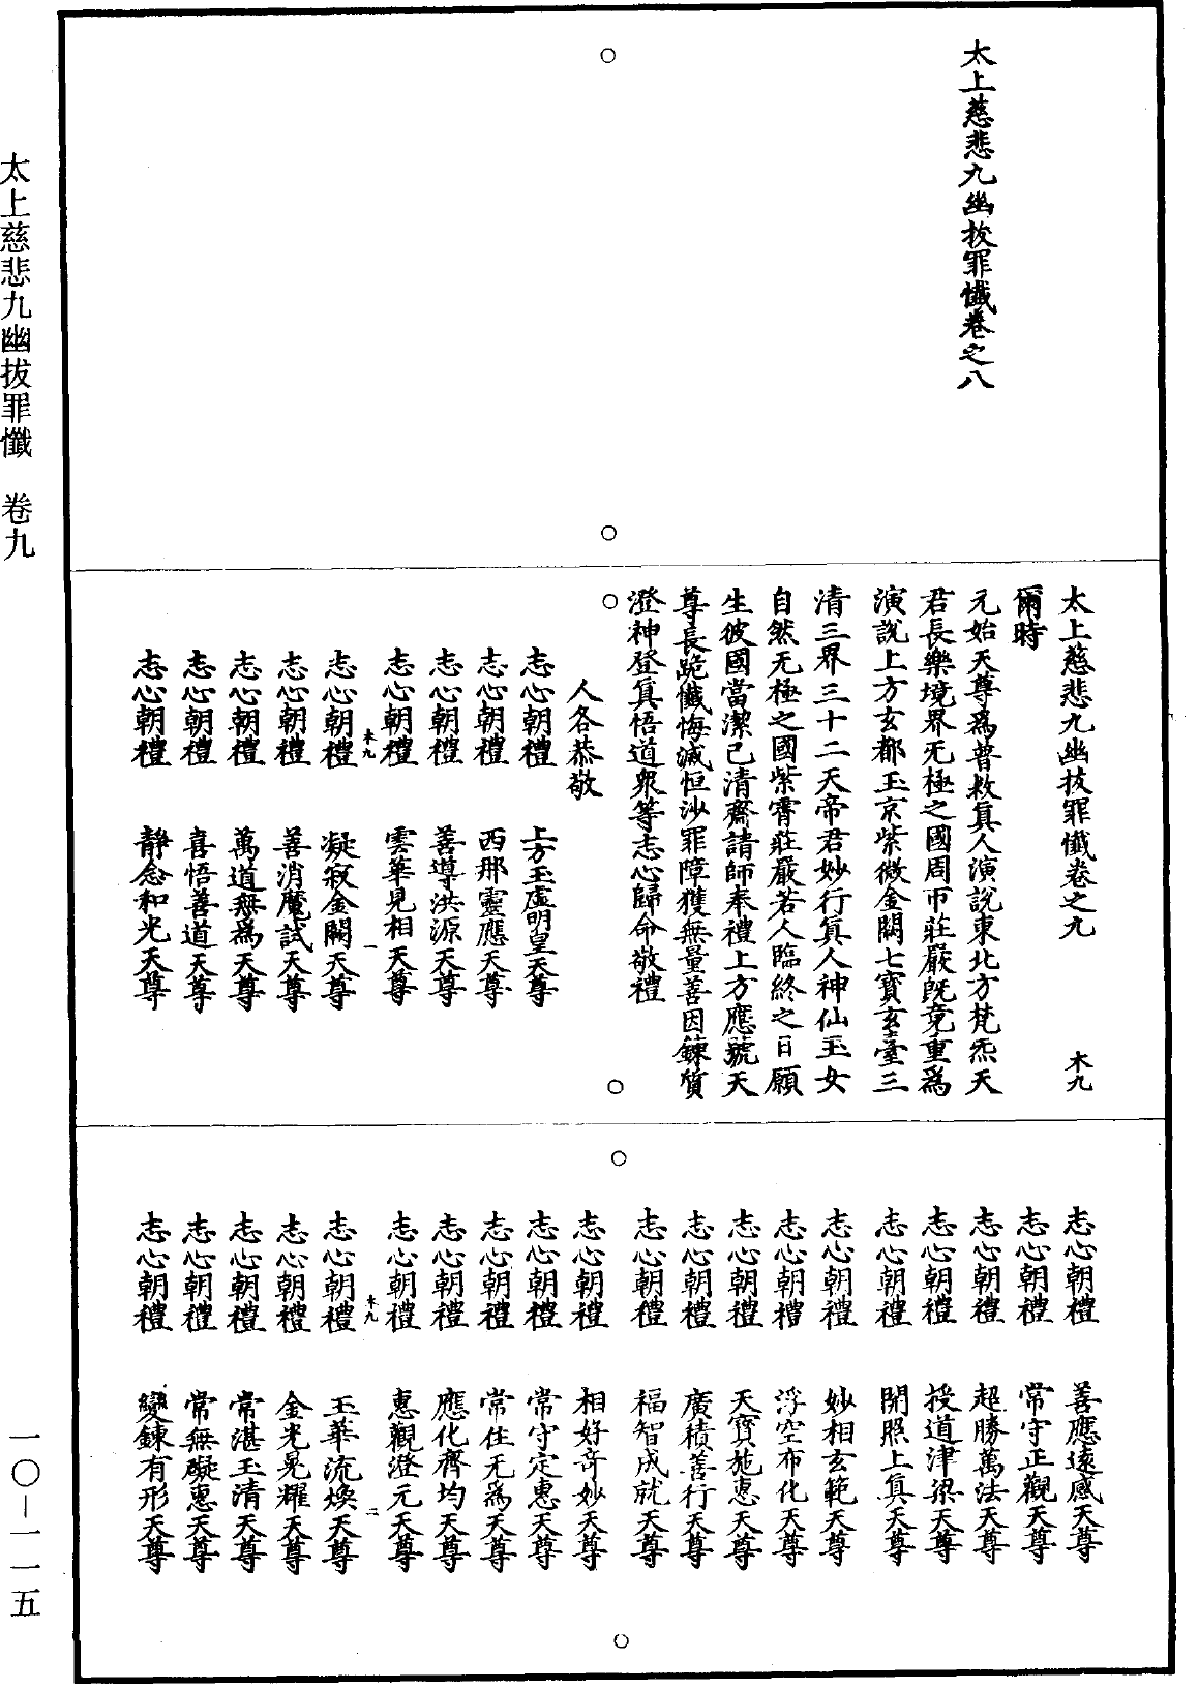 太上慈悲九幽拔罪懺卷之八
太上慈悲九幽拔罪懺卷之九 木九
爾時
元始天尊爲普救真人演說東北方梵炁天
君長樂境界无極之國周帀莊嚴既竟重爲
演說上方玄都玉京紫微金闕七寳玄臺三
清三界三十二天帝君妙行真人神仙玉女
自然无極之國紫霄莊嚴若人臨終之日願
生彼國當潔己清齋請師奉禮上方應號天
尊長跪懺悔滅恒沙罪障獲無量善因鍊質
澄神登真悟道衆等志心歸命敬禮
人各恭敬
志心朝禮 上方玉虛明皇天尊
志心朝禮 西那靈應天尊
志心朝禮 善導洪源天尊
志心朝禮 雲華見相天尊
木九 一
志心朝禮 凝寂金闕天尊
志心朝禮 善消魔試天尊
志心朝禮 萬道無爲天尊
志心朝禮 喜悟善道天尊
志心朝禮 靜念和光天尊
志心朝禮 善應遠感天尊
志心朝禮 常守正觀天尊
志心朝禮 超勝萬法天尊
志心朝禮 授道津梁天尊
志心朝禮 開照上真天尊
志心朝禮 妙相玄範天尊
志心朝禮 浮空布化天尊
志心朝禮 天寳施惠天尊
志心朝禮 廣積善行天尊
志心朝禮 福智成就天尊
志心朝禮 相好竒妙天尊
志心朝禮 常守定惠天尊
志心朝禮 常住无爲天尊
志心朝禮 應化齊均天尊
志心朝禮 惠觀澄元天尊
木九 二
志心朝禮 玉華流煥天尊
志心朝禮 金光晃耀天尊
志心朝禮 常湛玉清天尊
志心朝禮 常無礙惠天尊
志心朝禮 變鍊有形天尊
太上慈悲九幽拔罪懺 卷九
一〇-一一五